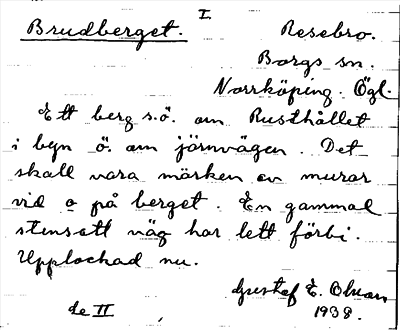 I.
Brudberget.
Resebro.
Borgs sn.
Norrköping. Ögl.
Ett berg s.ö. om Rusthållet
i byn ö. om järnvägen. Det
skall vara märken ev murar
vid o på berget. En gammal
stensatt väg har lett förbi.
Upplockad nu.
Gustaf E. Ohson
1938.
de II